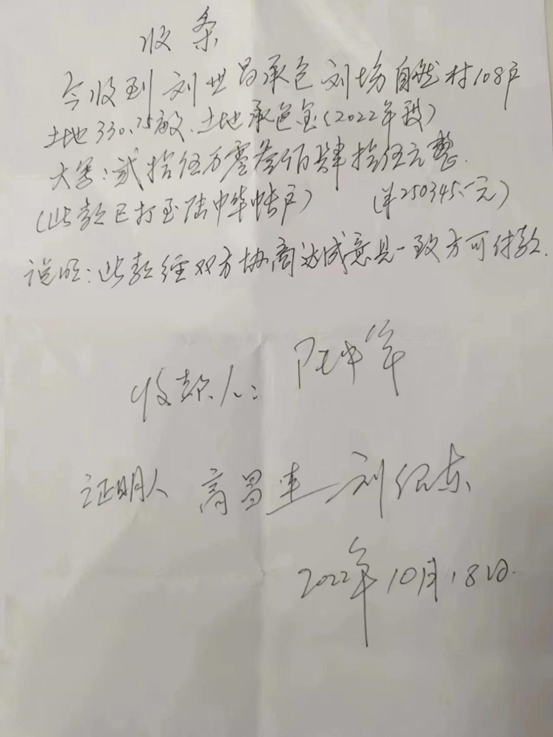 收条
今收到刘世昌承包刘场自然村108户
土地330.75亩.土地承包金(2022年段)
大写:贰拾伍万零叁佰肆拾伍元整.
(此款已打至陆中华帐户) (¥250345.元)
说明:此款经双方协商达成意见一致方可付款.
收款人: 陆中华
证明人 高昌 刘
2022年10月18日.